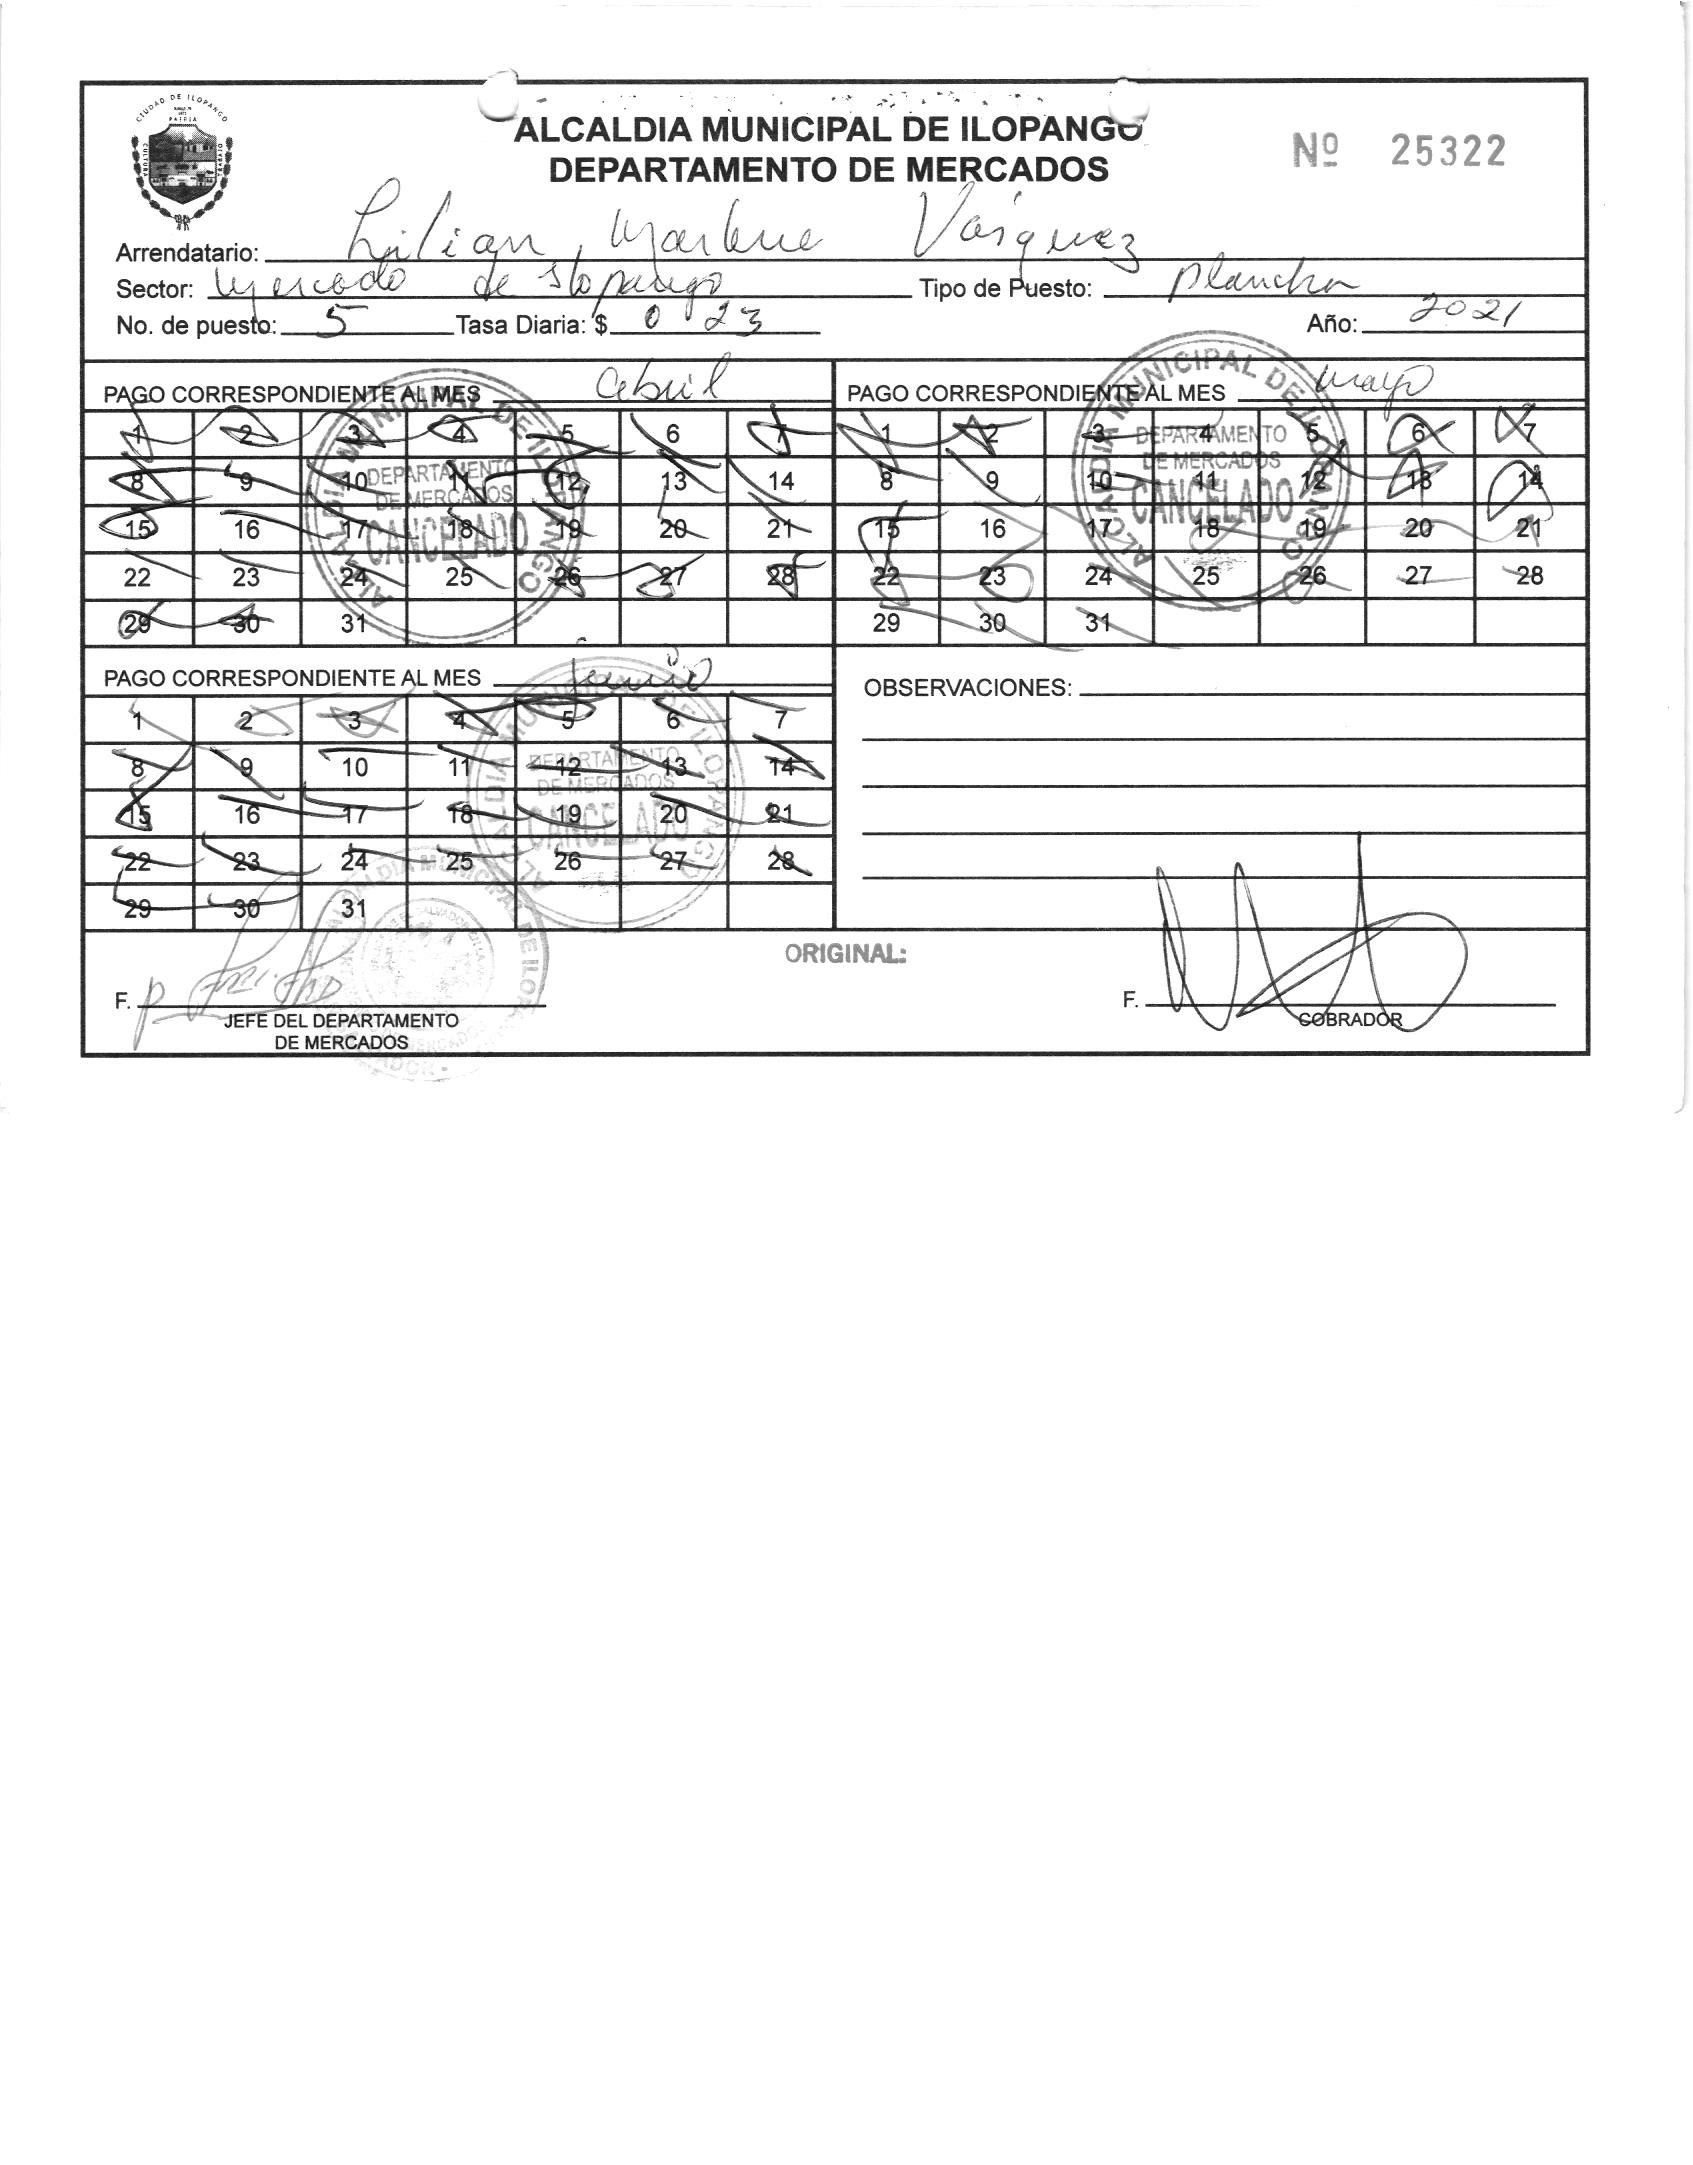 CIUDAD DE ILOPANGO
PATRIA
CULTURA
TRABAJO
ALCALDIA MUNICIPAL DE ILOPANGO
DEPARTAMENTO DE MERCADOS
Nº 25322
Arrendatario: Lilian Marlene Vásquez
Sector: Mercado de Ilopango Tipo de Puesto: plancha
No. de puesto: 5 Tasa Diaria: $ 0 23 Año: 2021
PAGO CORRESPONDIENTE AL MES abril
1 2 3 4 5 6 7
8 9 10 11 12 13 14
15 16 17 18 19 20 21
22 23 24 25 26 27 28
29 30 31
ALCALDIA MUNICIPAL DE ILOPANGO
DEPARTAMENTO
DE MERCADOS
CANCELADO
PAGO CORRESPONDIENTE AL MES mayo
1 2 3 4 5 6 7
8 9 10 11 12 13 14
15 16 17 18 19 20 21
22 23 24 25 26 27 28
29 30 31
ALCALDIA MUNICIPAL DE ILOPANGO
DEPARTAMENTO
DE MERCADOS
CANCELADO
PAGO CORRESPONDIENTE AL MES junio
1 2 3 4 5 6 7
8 9 10 11 12 13 14
15 16 17 18 19 20 21
22 23 24 25 26 27 28
29 30 31
ALCALDIA MUNICIPAL DE ILOPANGO
DEPARTAMENTO
DE MERCADOS
CANCELADO
OBSERVACIONES:
ORIGINAL:
F.
JEFE DEL DEPARTAMENTO
DE MERCADOS
ALCALDIA MUNICIPAL DE ILOPANGO
F.
COBRADOR